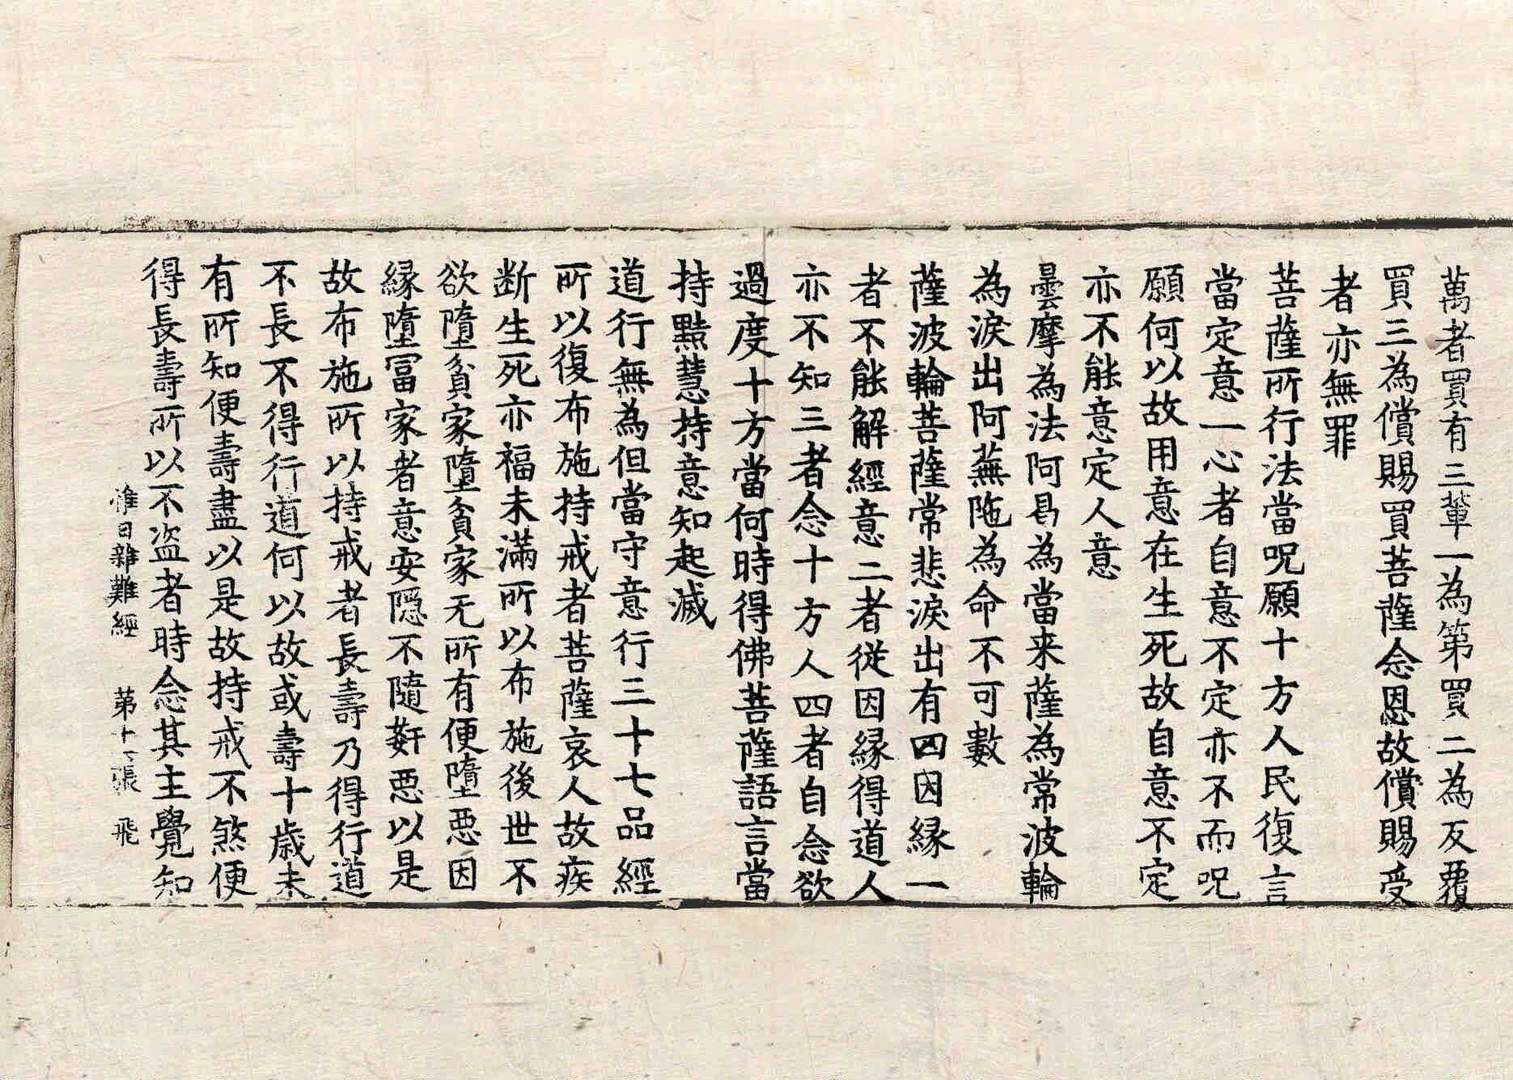 萬者買有三輩一為第買二為反覆
買三為償賜買菩薩念恩故償賜受
者亦無罪
菩薩所行法當呪願十方人民復言
當定意一心者自意不定亦不而呪
願何以故用意在生死故自意不定
亦不能意定人意
曇摩為法阿曷為當来薩為常波輪
為淚出阿蕪陁為命不可數
薩波輪菩薩常悲淚出有四因緣一
者不能解經意二者從因緣得道人
亦不知三者念十方人四者自念欲
過度十方當何時得佛菩薩語言當
持黠慧持意知起滅
道行無為但當守意行三十七品經
所以復布施持戒者菩薩哀人故疾
断生死亦福未滿所以布施後世不
欲墮貧家墮貧家无所有便墮惡因
緣墮冨家者意安隱不隨姧惡以是
故布施所以持戒者長壽乃得行道
不長不得行道何以故或壽十歲未
有所知便壽盡以是故持戒不煞便
得長壽所以不盗者時念其主覺知
惟日雜難經 第十六張 飛